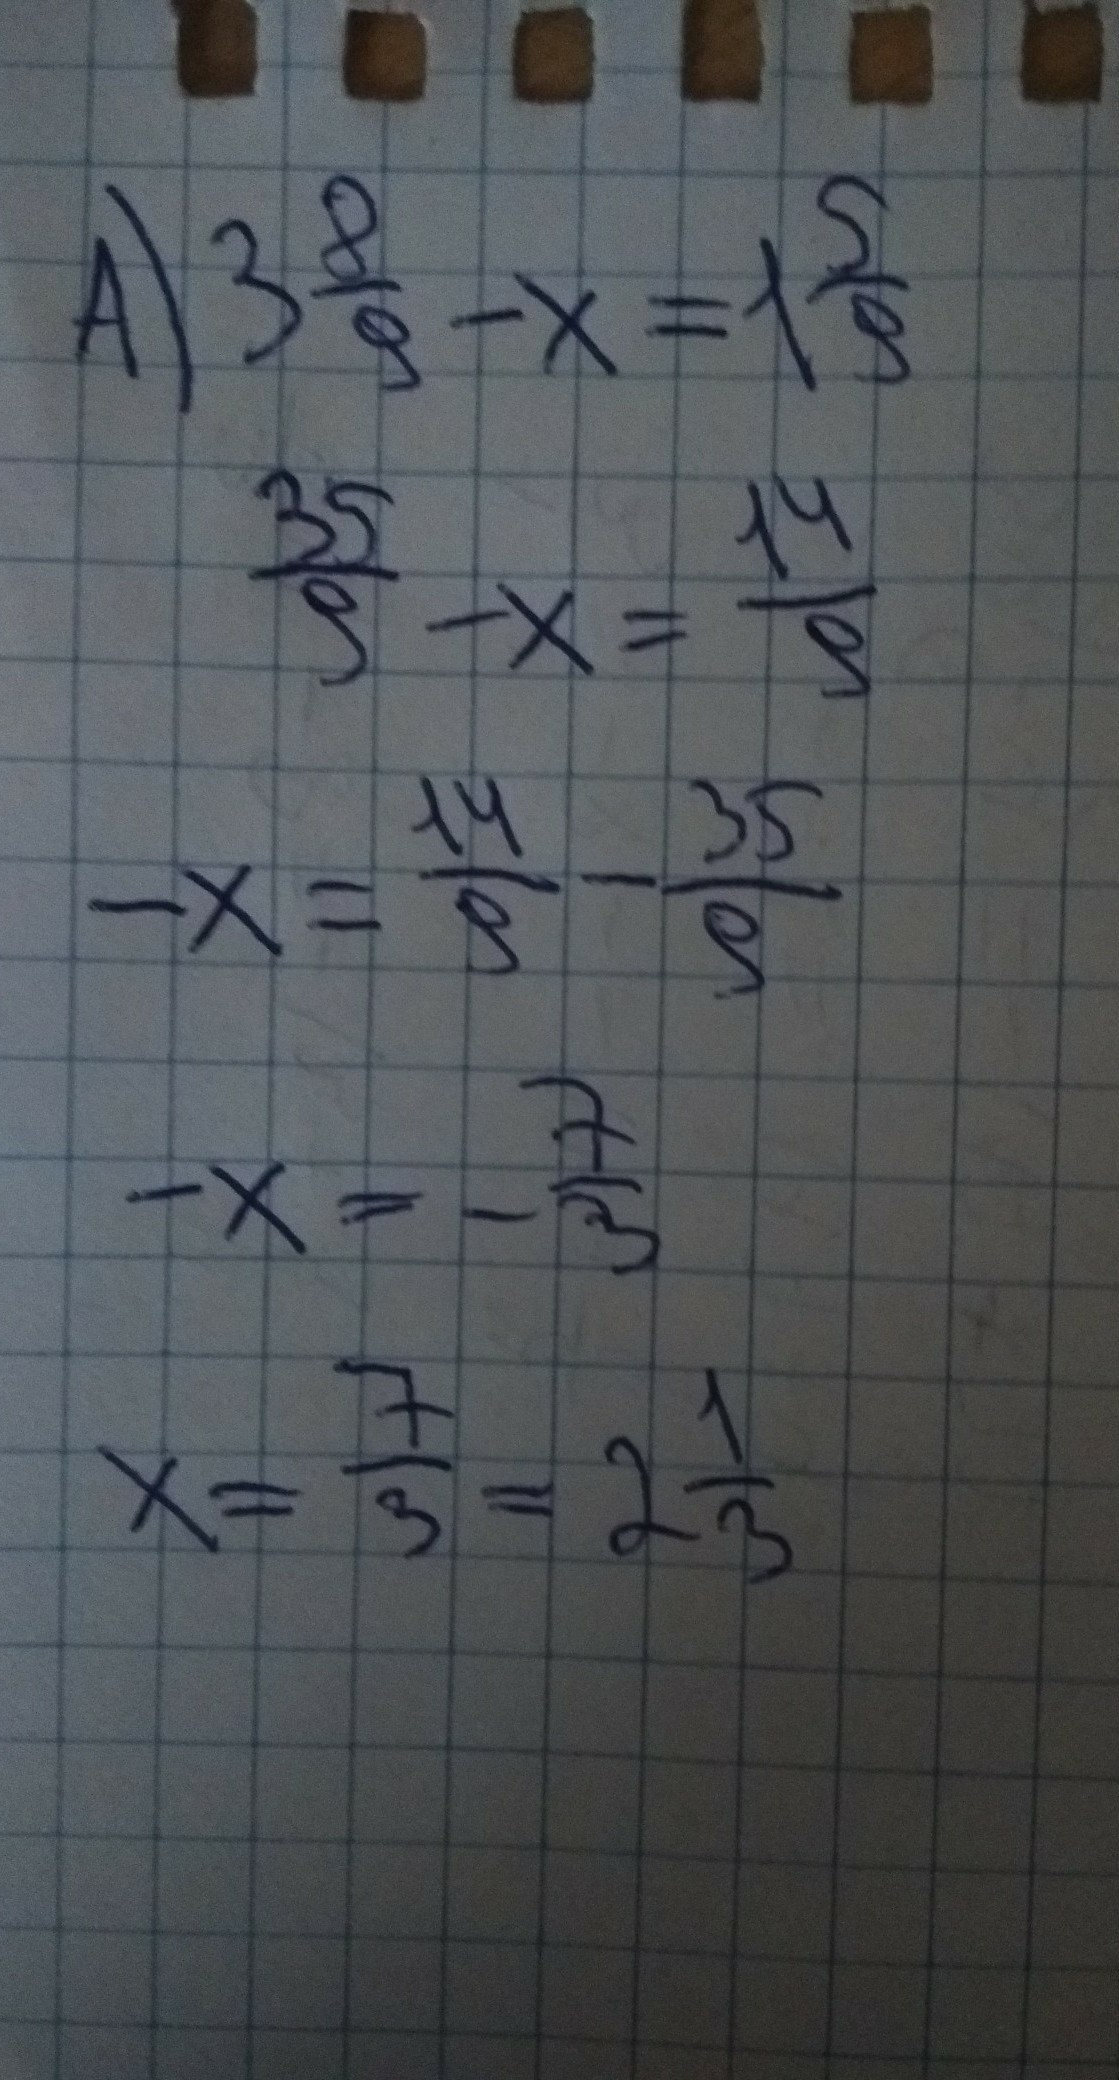 А) 3 8/9 - x = 1 5/9
35/9 - x = 14/9
-x = 14/9 - 35/9
-x = - 7/3
x = 7/3 = 2 1/3